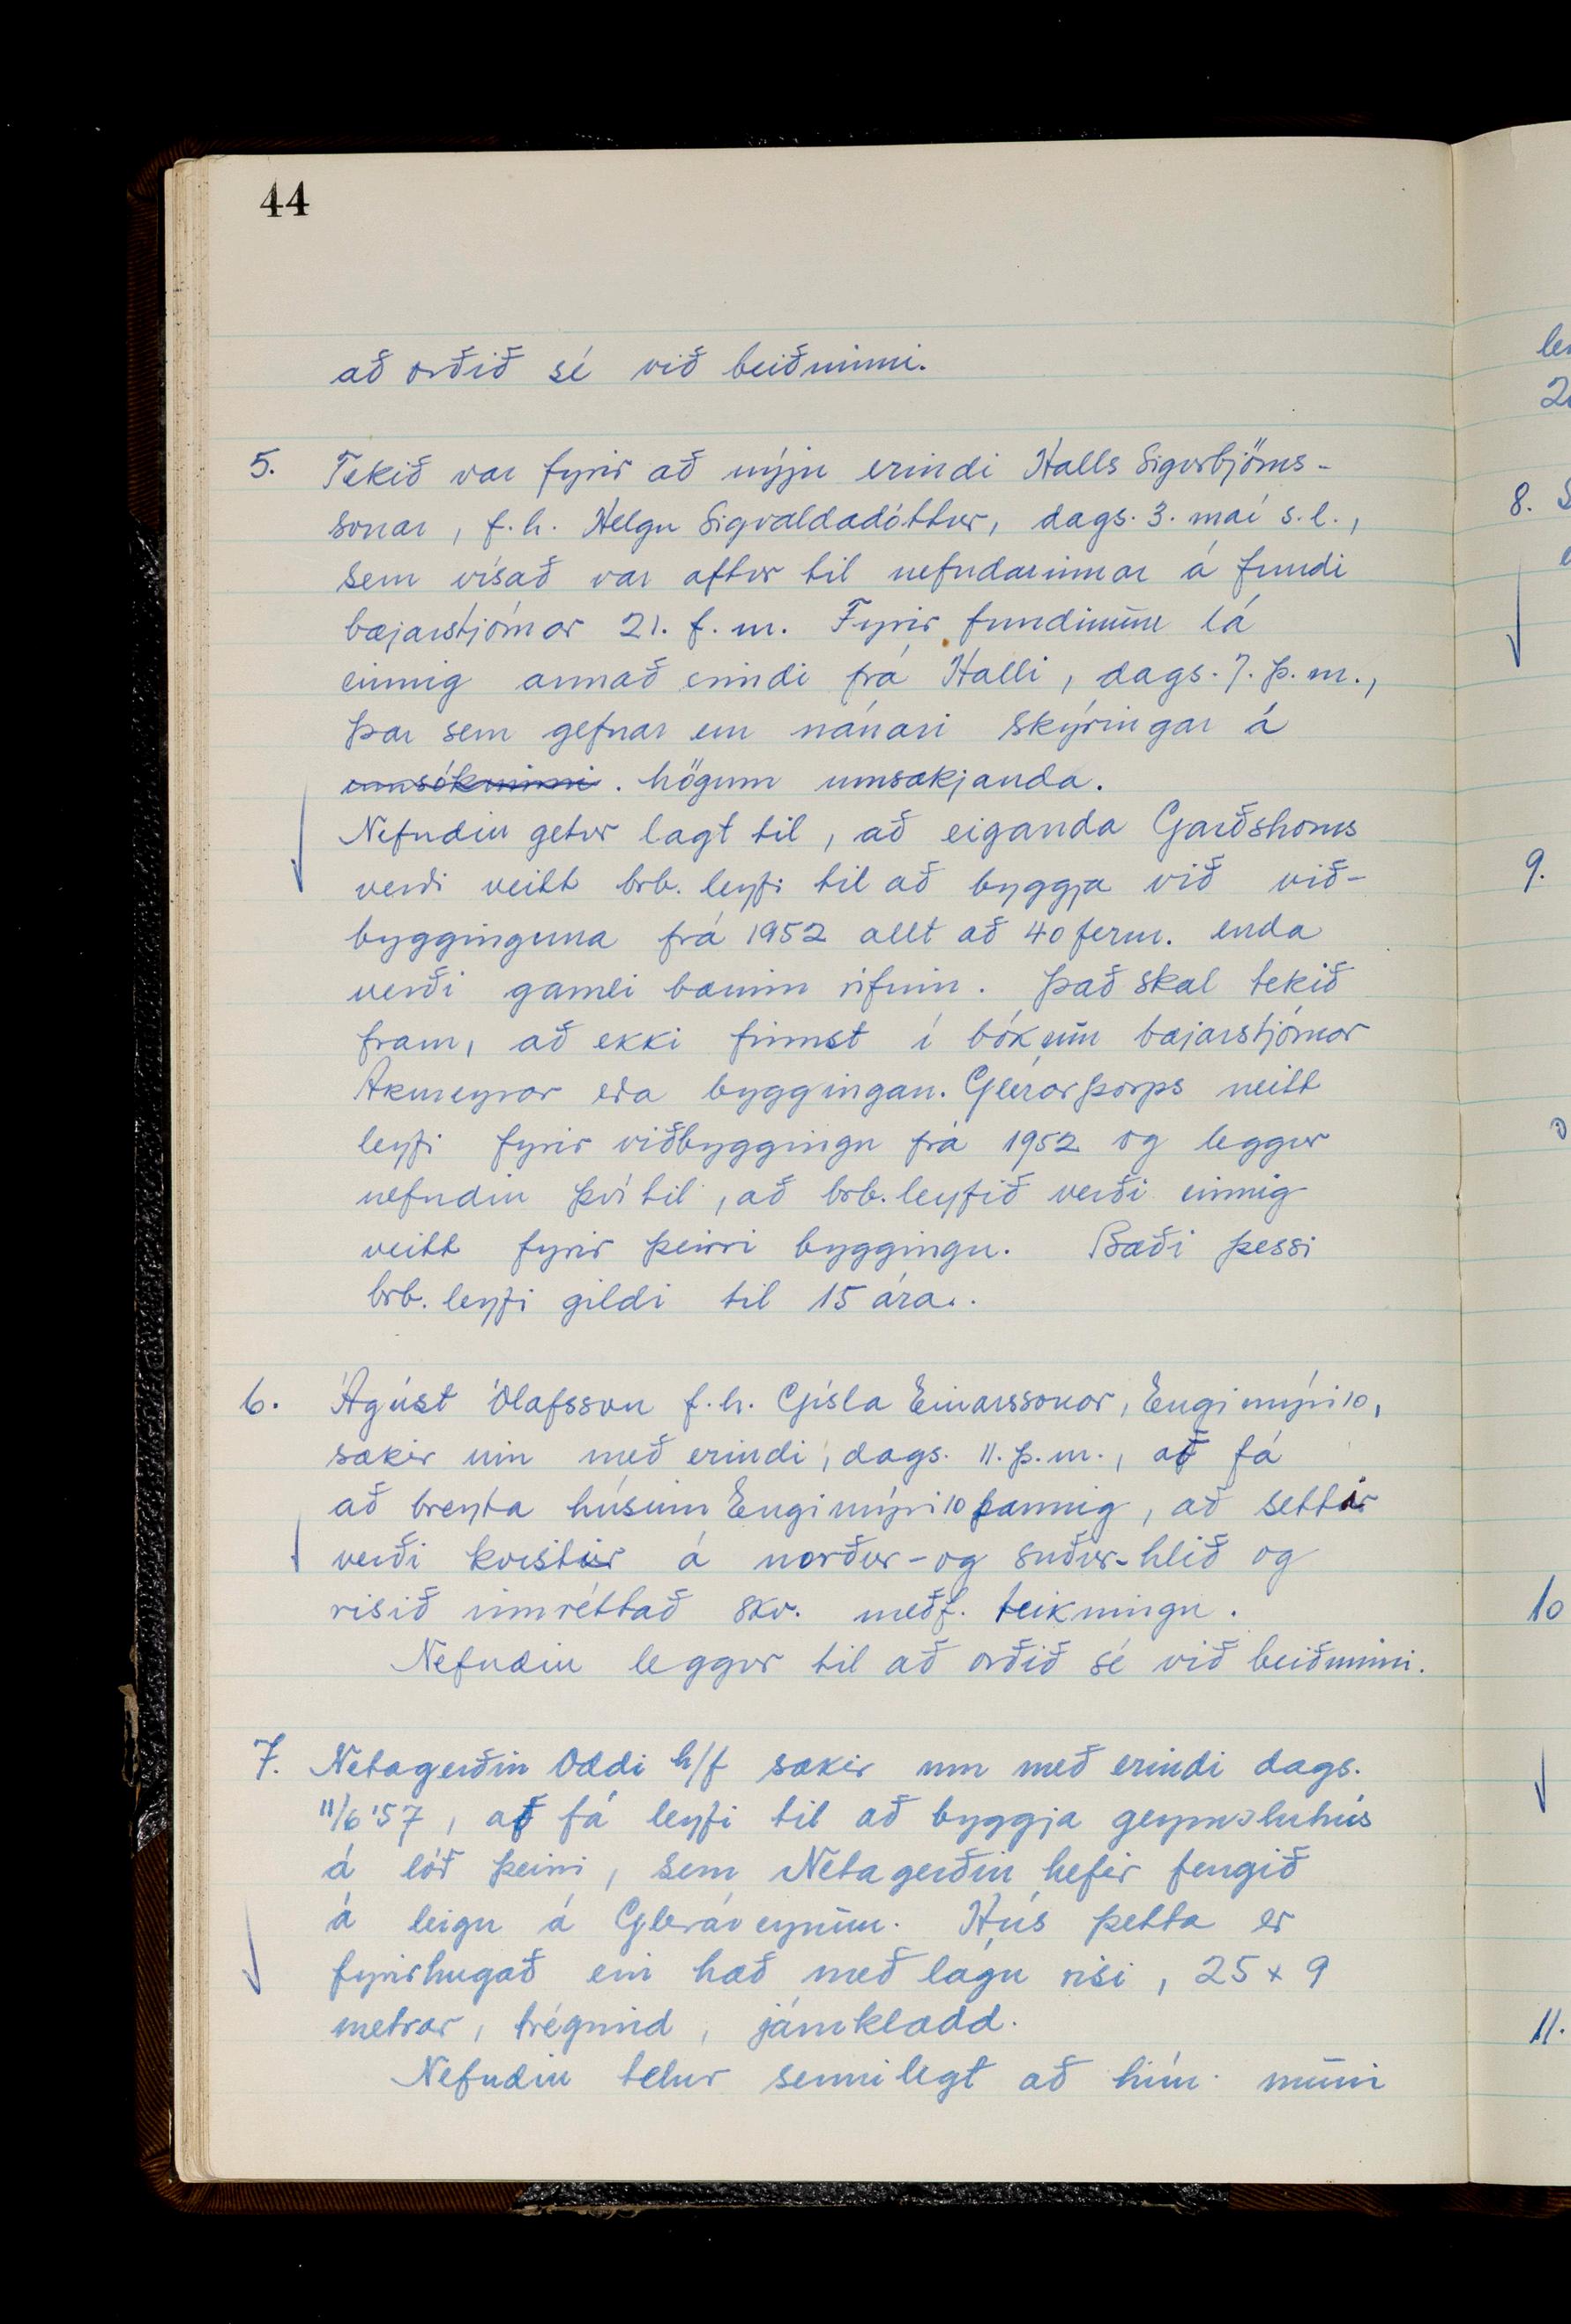 44
að orðið sé við beiðninni.
5. Tekið var fyrir að nýju erindi Halls Sigurbjörns-
sonar, f.h. Helgu Sigvaldadóttur, dags. 3. maí s.l.,
sem vísað var aftur til nefndarinnar á fundi
bæjarstjórnar 21. f.m. Fyrir fundinum lá
einnig annað erindi frá Halli, dags. 7. þ.m.,
þar sem gefnar eru nánari skýringar á
umsókninni. högum umsækjanda.
Nefndin getur lagt til, að eiganda Garðshorns
verði veitt brb. leyfi til að byggja við við-
bygginguna frá 1952 allt að 40 ferm. enda
verði gamli bærinn rifinn. Það skal tekið
fram, að ekki finnst í bókum bæjarstjórnar
Akureyrar eða byggingan. Glerárþorps neitt
leyfi fyrir viðbyggingu frá 1952 og leggur
nefndin því til, að brb. leyfið verði einnig
veitt fyrir þeirri byggingu. Bæði þessi
brb. leyfi gildi til 15 ára.
6. Ágúst Ólafsson f.h. Gísla Einarssonar, Engimýri 10,
sækir um með erindi, dags. 11. þ.m., að fá
að breyta húsinu Engimýri 10 þannig, að settir
verði kvistir á norður- og suður-hlið og
risið innréttað skv. meðf. teikningu.
Nefndin leggur til að orðið sé við beiðninni.
7. Netagerðin Oddi h/f sækir um með erindi dags.
11/6 '57, að fá leyfi til að byggja geymsluhús
á lóð þeirri, sem Netagerðin hefir fengið
á leigu á Gleráreyrum. Hús þetta er
fyrirhugað ein hæð með lágu risi, 25 x 9
metrar, trégrind, járnklædd.
Nefndin telur sennilegt að hún muni
8.
9.
10
11.